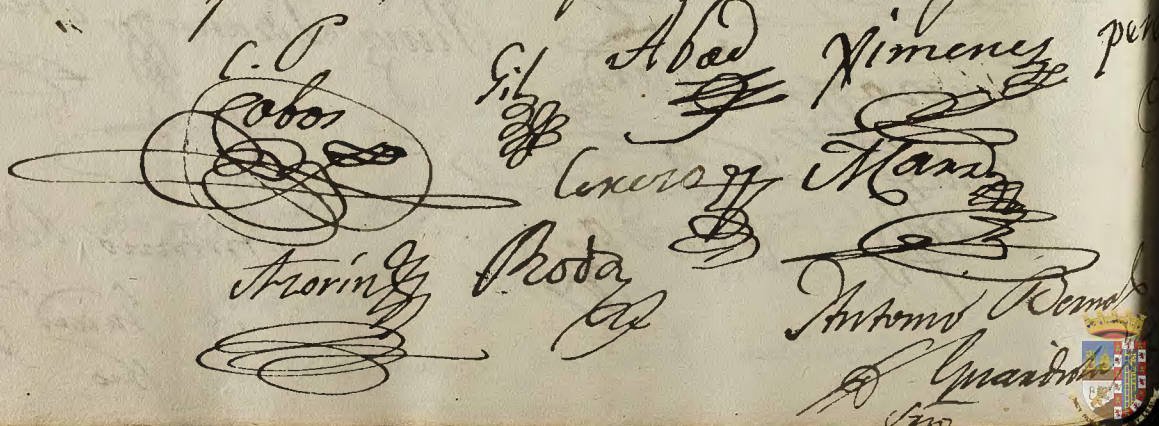 C. P.
Cobos
Gil
Abad
Ximenez
Cerezo
Azorin
Roda
Antonio Bernal
Guardiola